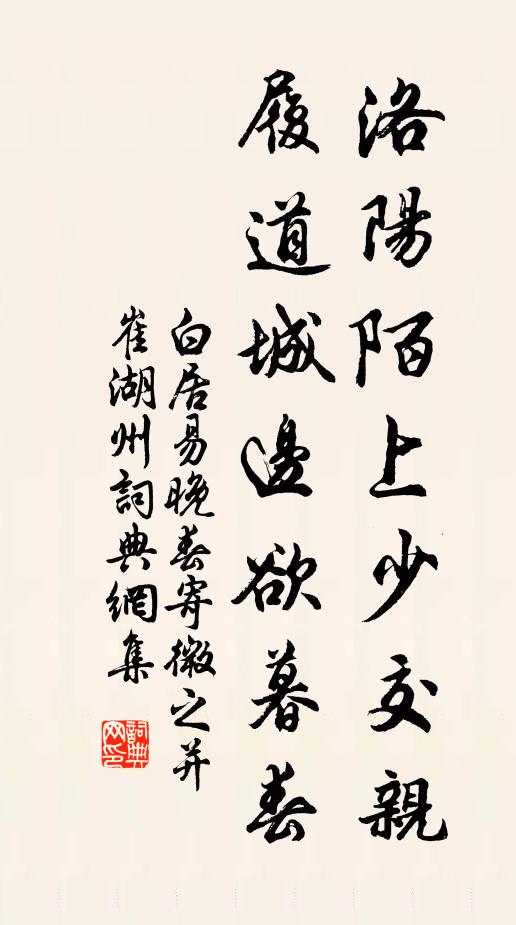 洛陽陌上少交親
履道城邊欲暮春
白居易晚春寄微之并
崔湖州詞典網集
詞典
网印